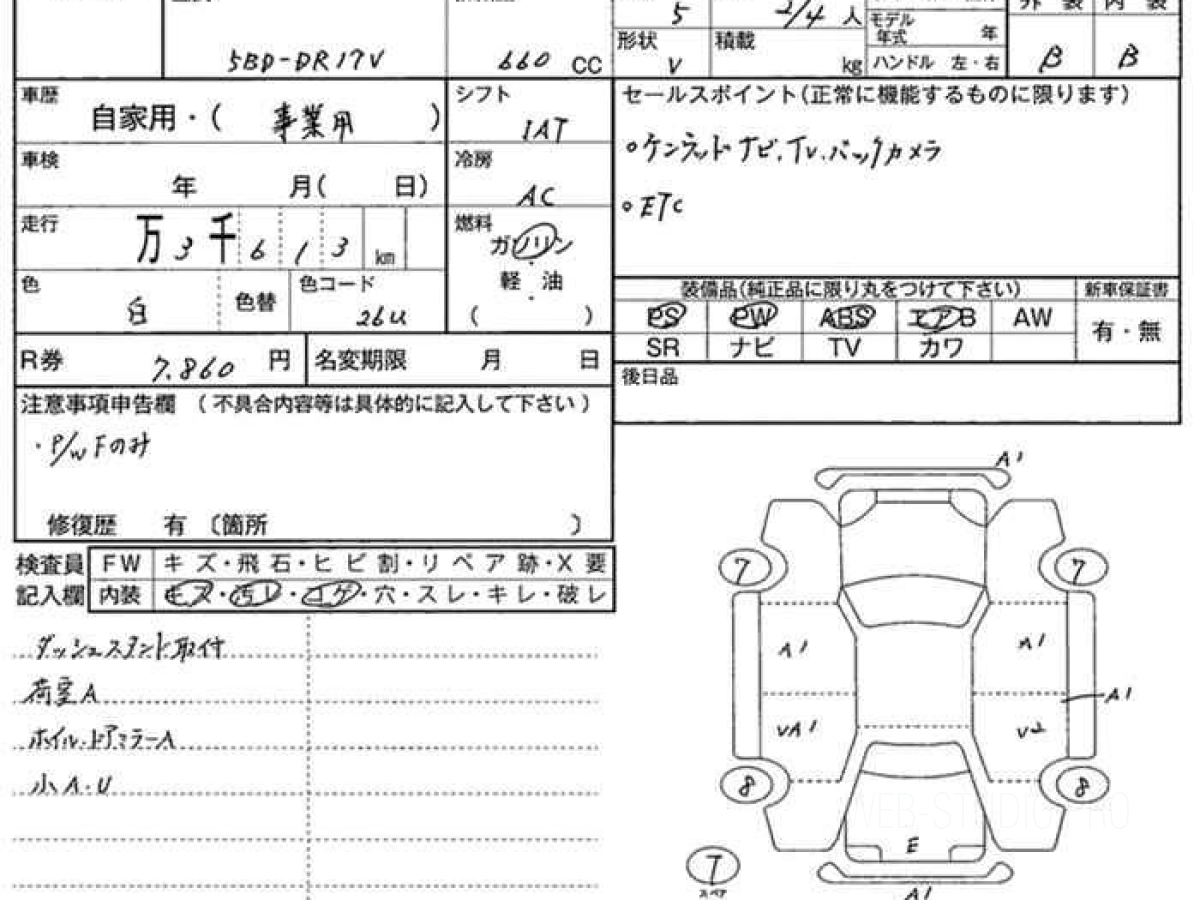 5 2/4 人 外 装 内 装
5BD-DR17V 660 CC 形状 V 積載 kg モデル年式 年 ハンドル 左・右 B B
車歴 自家用・( 事業用 ) シフト IAT
セールスポイント(正常に機能するものに限ります)
◦ケンウッドナビ.TV.バックカメラ
◦ETC
車検 年 月( 日) 冷房 AC
走行 万 3 千 6 1 3 km
燃料 ガソリン
軽・油
( )
色 白 色替 色コード 26U
装備品(純正品に限り丸をつけて下さい) 新車保証書
PS PW ABS エアB AW 有・無
SR ナビ TV カワ
R券 7.860 円 名変期限 月 日
後日品
注意事項申告欄 (不具合内容等は具体的に記入して下さい)
・P/W Fのみ
修復歴 有 〔箇所 〕
検査員記入欄
FW キズ・飛石・ヒビ割・リペア跡・X要
内装 キズ・汚レ・コゲ・穴・スレ・キレ・破レ
ダッシュスタンド取付
荷室A
ホイル・ドアミラーA
小A・U
A1
7 7
A1 A1
A1
UA1 U2
8 8
E
7
スペア
A1
WEB-STUDIO.PRO